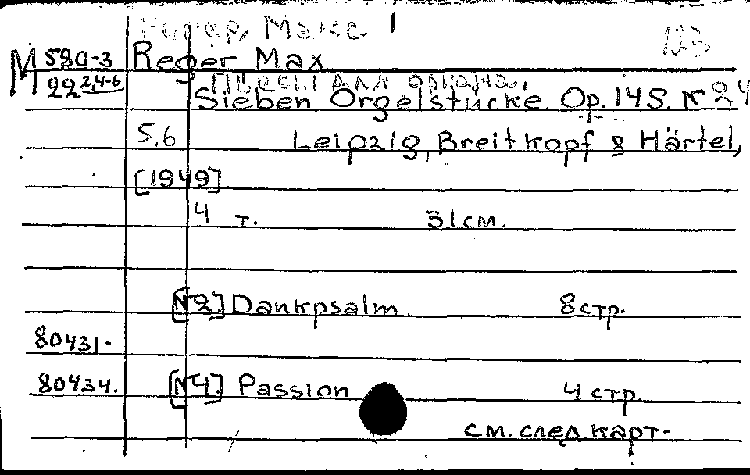 Регер, Макс 1
M 580-3 Reger Max
22 2,4-6 Пьесы для органа.
Sieben Orgelstücke Op. 145. N 2 4
5.6 Leipzig, Breitkopf & Härtel,
[1949]
4 т. 31см.
[N 2] Dankpsalm 8 стр.
80431.
80434. [N 4.] Passion 4 стр.
см. след карт.